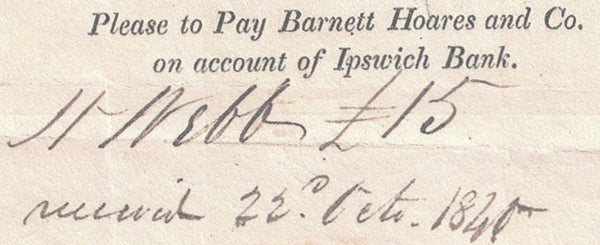 Please to Pay Barnett Hoares and Co.
on account of Ipswich Bank.
H Webb £15
received 22d Octr. 1840